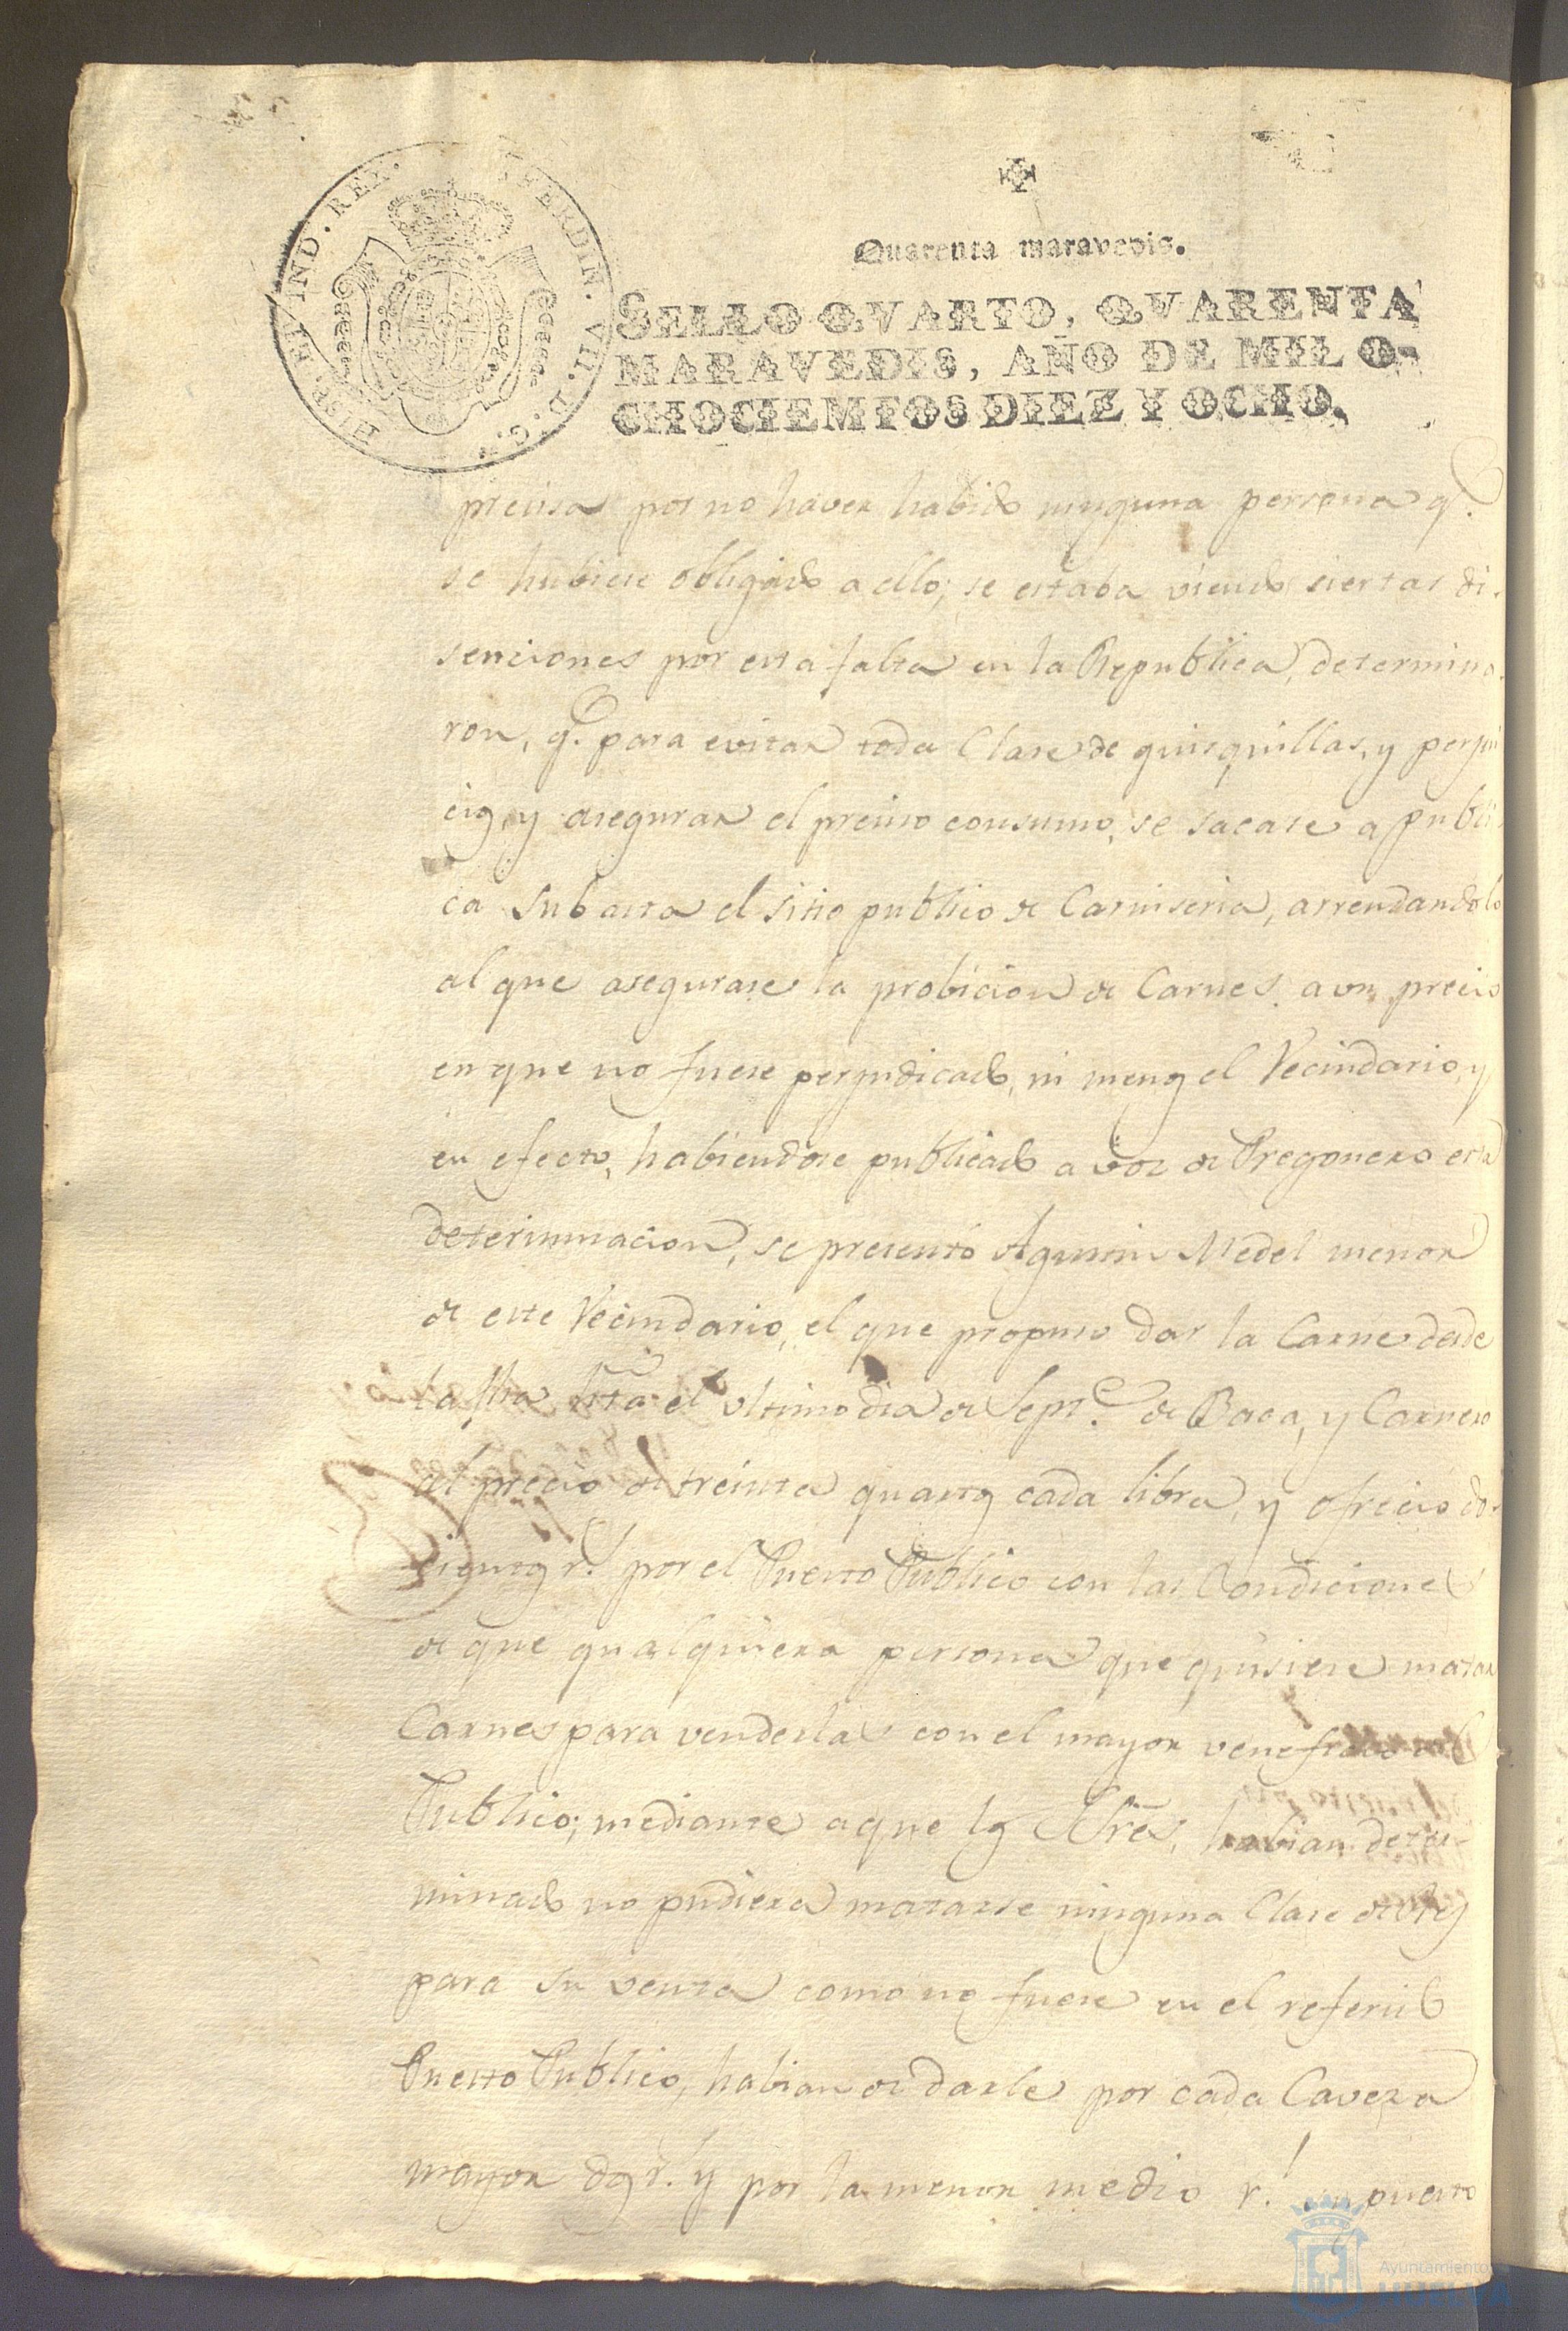 HISP. ET IND. REX. FERDIN. VII. D. G.
Quarenta maravedis.
SELLO QVARTO, QVARENTA
MARAVEDIS, AÑO DE MIL O-
CHOCIENTOS DIEZ Y OCHO.
precisa por no haver habido ninguna persona q.e
se hubiese obligado a ello; se estaba viendo siertas di-
senciones por esta falta en la Republica, determina-
ron, q.e para evitar toda Clase de quisquillas, y perjui
cios, y asegurar el preciso consumo, se sacase a publi
ca subasta el sitio publico de Carniseria, arrendandolo
al que asegurase la probicion de Carnes a un precio
en que no fuese perjudicado, ni menos el Vecindario, y
en efecto, habiendose publicado a voz de Pregonero esta
determinacion, se presentó Agustin Medel menor
de este Vecindario, el que propuso dar la Carne desde
la fha hta el ultimo dia de Sept.e de Baca, y Carnero
al precio de treinta quartos cada libra, y ofrecio do-
sientos r.s por el Puesto Publico con las Condiciones
de que qualquiera persona que quisiere matar
Carnes para venderlas con el mayor veneficio al
Publico; mediante a que los Sres. habian deter-
minado no pudiera matarse ninguna Clase de Res
para su venta como no fuese en el referido
Puesto Publico, habian de darle por cada Caveza
mayor dos r.s y por la menor medio r.l puesto
Ayuntamiento
HUELVA